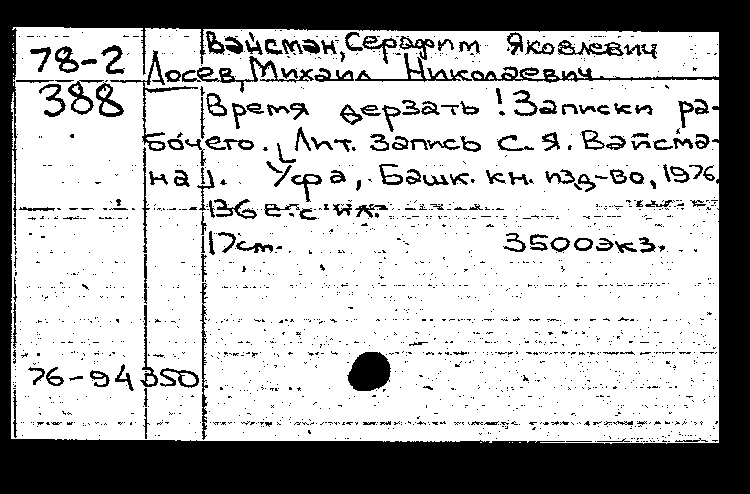 Вайсман, Серафим Яковлевич
78-2 Лосев, Михаил Николаевич
388 Время дерзать! Записки ра-
бочего. [Лит. запись С. Я. Вайсма-
на]. Уфа, Башк. кн. изд-во, 1976.
136 с. с ил.
17 см. 3500 экз.
76-94350